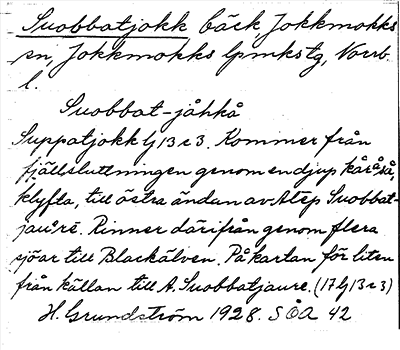 Suobbatjokk bäck Jokkmokks
sn, Jokkmokks lpmkstg, Norrb.
l.
Suobbat-jåhkå
Suppatjokk lj 13 r 3. Kommer från
fjällsluttningen genom en djup kårså,
klyfta, till östra ändan av Alep Suobbat-
jaurē. Rinner därifrån genom flera
sjöar till Blackälven. På kartan för liten
från källan till A. Suobbatjaure. (17 lj 13 r 3)
H. Grundström 1928. SOA 42